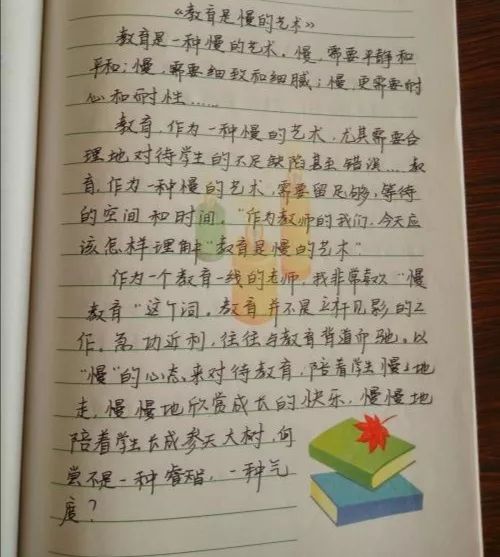 《教育是慢的艺术》
教育是一种慢的艺术。慢，需要平静和
平和；慢，需要细致和细腻；慢，更需要耐
心和耐性……
教育，作为一种慢的艺术，尤其需要合
理地对待学生的不足缺陷甚至错误……教
育，作为一种慢的艺术，需要留足够，等待
的空间和时间。“作为教师的我们，今天应
该怎样理解“教育是慢的艺术”
作为一个教育一线的老师，我非常喜欢“慢
教育”这个词。教育并不是立杆见影的工
作。急功近利，往往与教育背道而驰。以
“慢”的心态，来对待教育，陪着学生慢々地
走，慢慢地欣赏成长的快乐，慢慢地
陪着学生长成参天大树，何
尝不是一种睿智，一种气
度？